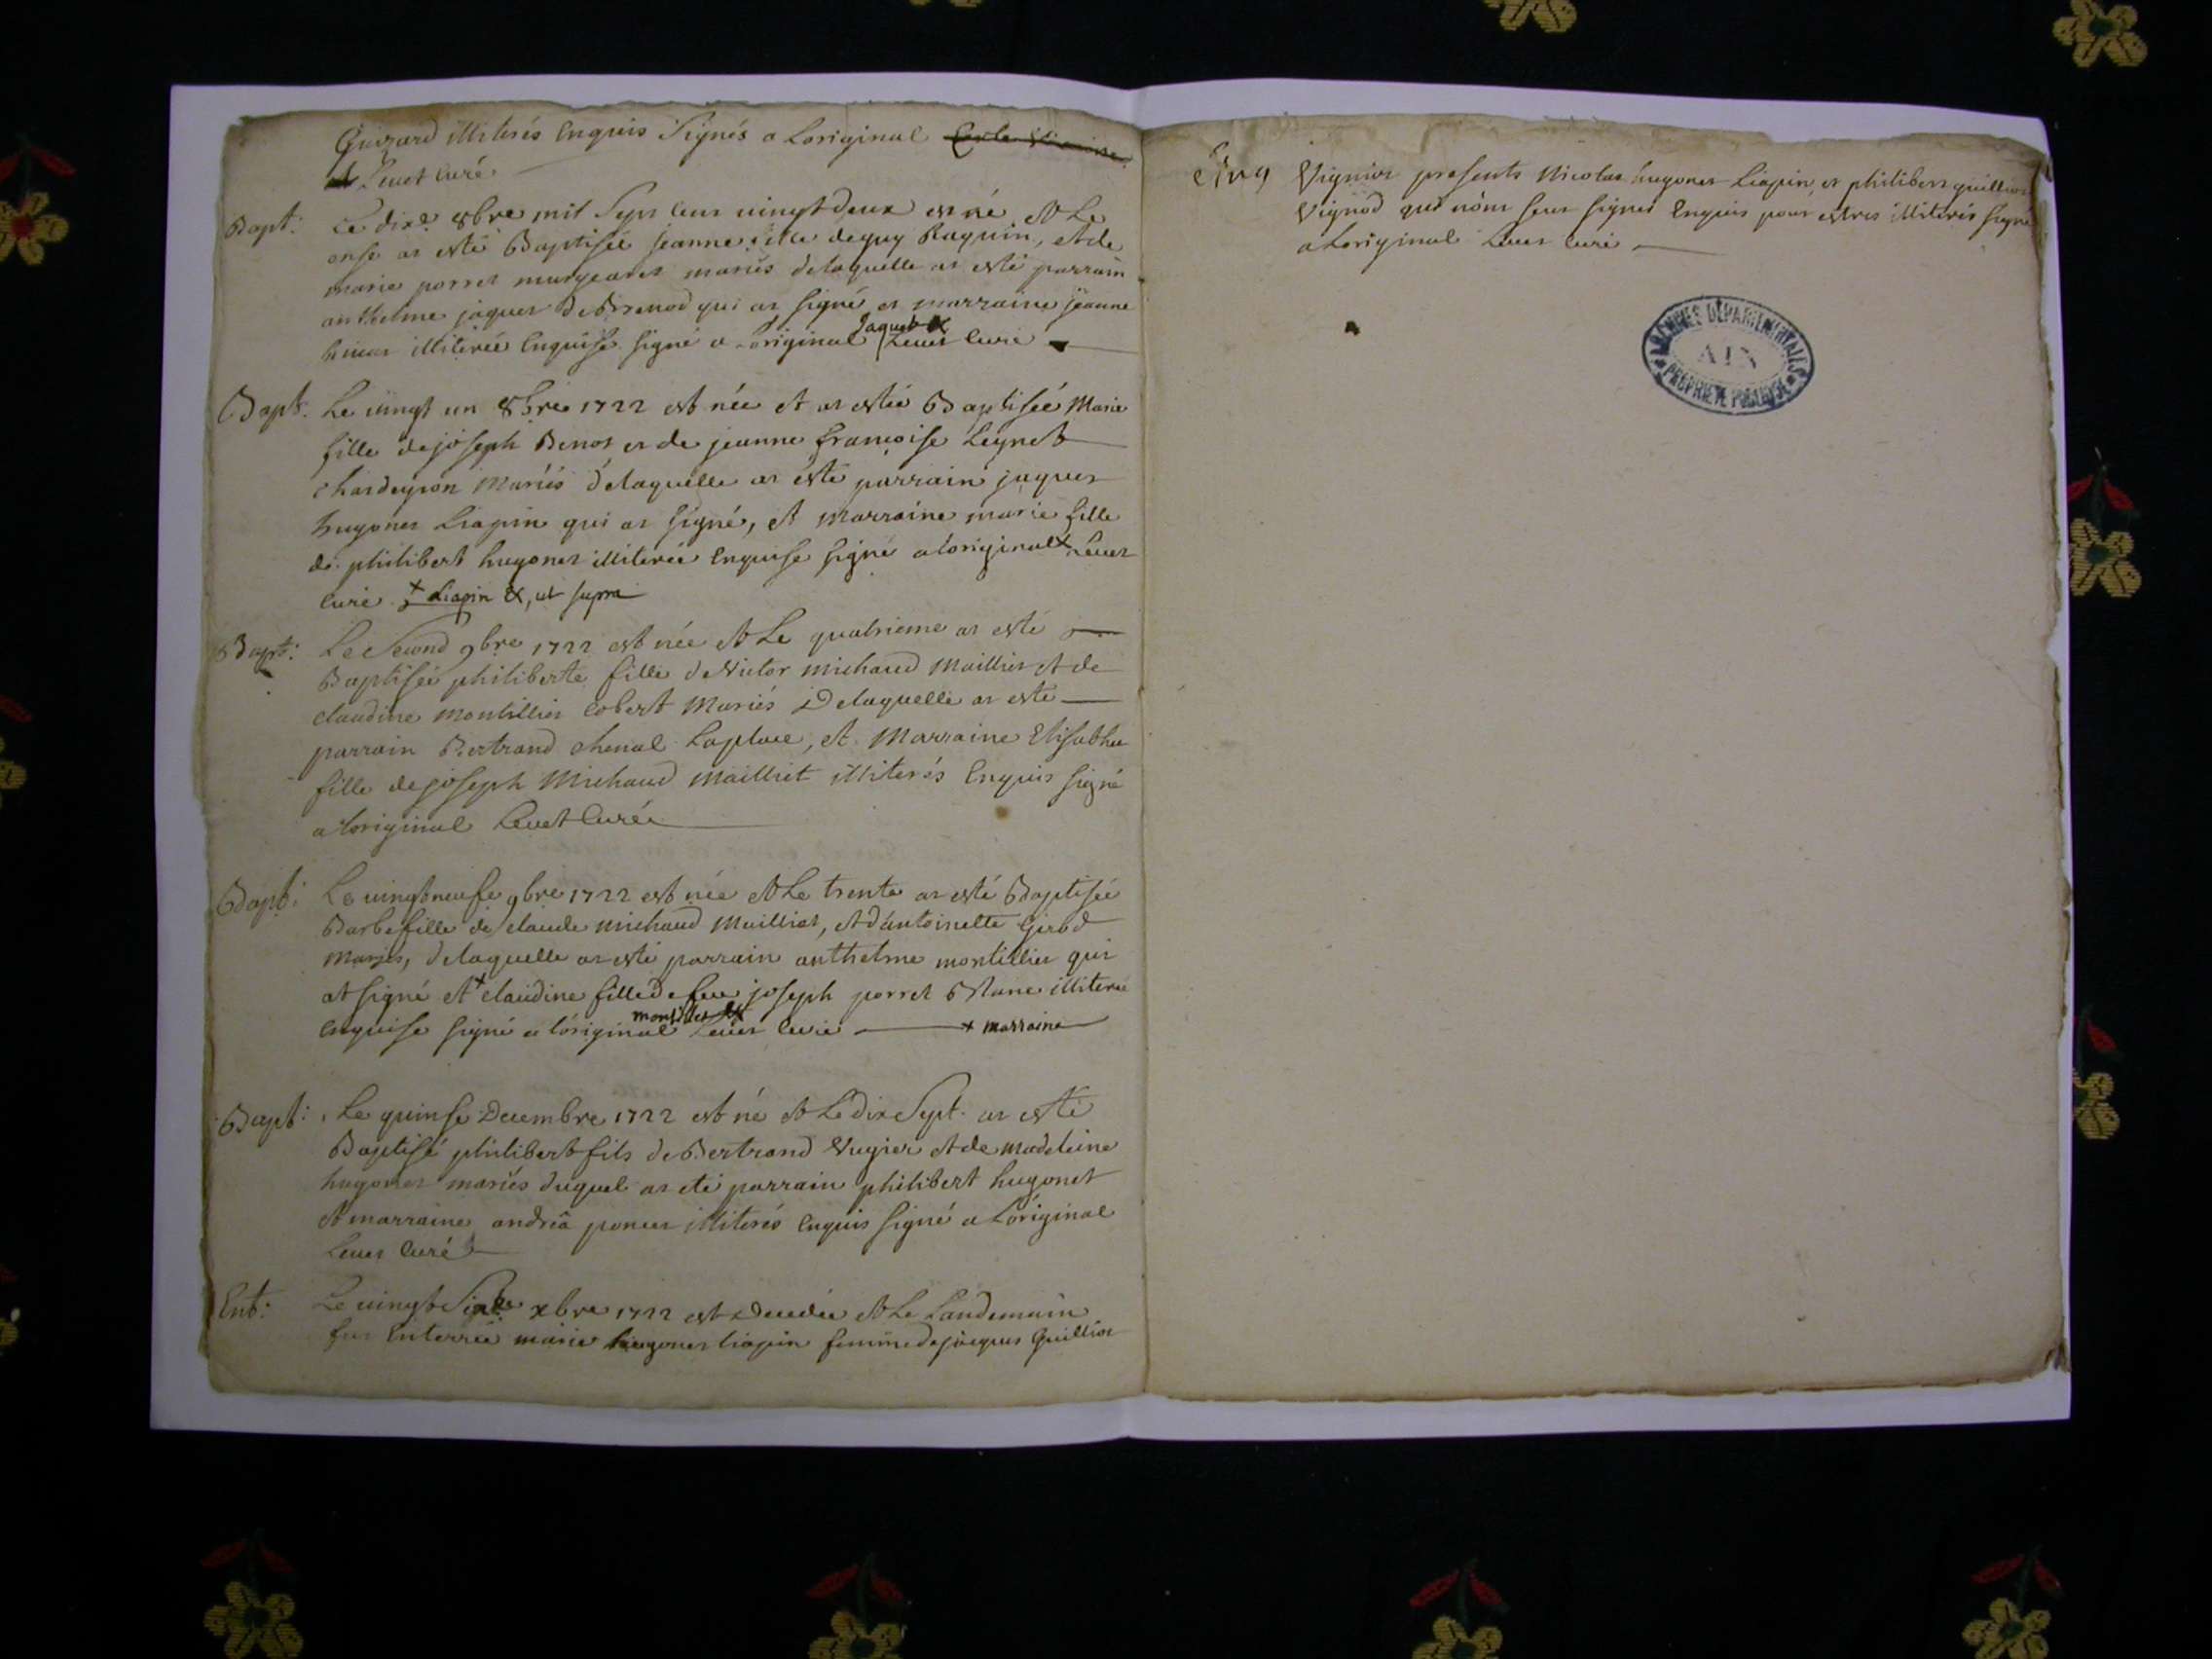 Guirard illiterés Enquis Signés a Loriginal
Levet Curé
Bapt: Le dixe 8bre mil Sept cens vingt deux est né et Le
onse at esté Baptiseé Jeanne fille de guy Raquin, et de
marie porret murgeares mariés delaquelle at esté parrain
anthelme jaquet de Brenod qui at signé et marraine jeanne
illitereé Enquise signé a Loriginal Jaquet & Levet Curé
Bapt: Le vingt un 8bre 1722 est née et at estée Baptiseé Marie
fille de joseph Benot et de jeanne françoise Leynet
chardeyron Mariés delaquelle at esté parrain jaques
hugonet Liapin qui at signé, et marraine marie fille
de philibert hugonet illitereé Enquise signé a loriginal x Levet
Curé x Liapin &, ut supra
Bapt: Le Second 9bre 1722 est née et Le quatrieme at esté
Baptiseé philiberte fille de Victor michaud Mailliet et de
claudine montillier Cobert Mariés Delaquelle at esté
parrain Bertrand chenal Laplace, et Marraine Elisabhe
fille de joseph Michaud Mailliet illiterés Enquis signé
a loriginal Levet Curé
Bapt: Le vingt neufe 9bre 1722 est née et Le trente at esté Baptiseé
Barbe fille de claude michaud Mailliet, et d'antoinette Girod
Mariés, delaquelle at esté parrain anthelme montillier qui
at signé et x claudine fille de feu joseph porret illitereé
Enquise signé a loriginal montillier & Levet Curé x marraine
Bapt: Le quinse Decembre 1722 est né et Le dix Sept at esté
Baptisé philibert fils de Bertrand Vugier et de madeleine
hugonet mariés duquel at eté parrain philibert hugonet
et marraine andréa poncet illiterés Enquis signé a Loriginal
Levet Curé
Ent: Le vingt xbre 1722 est Decedée et Le Landemain
fut Enterreé marie hugonet liapin femme de jacques Guilliot
Vignier presents Nicolas hugonet Liapin, et philibert guilliot
Vignod qui nônt seut signer Enquis pour estres illiterés signé
a Loriginal Levet Curé
ARCHIVES DÉPARTEMENTALES
AIN
PROPRIÉTÉ PUBLIQUE